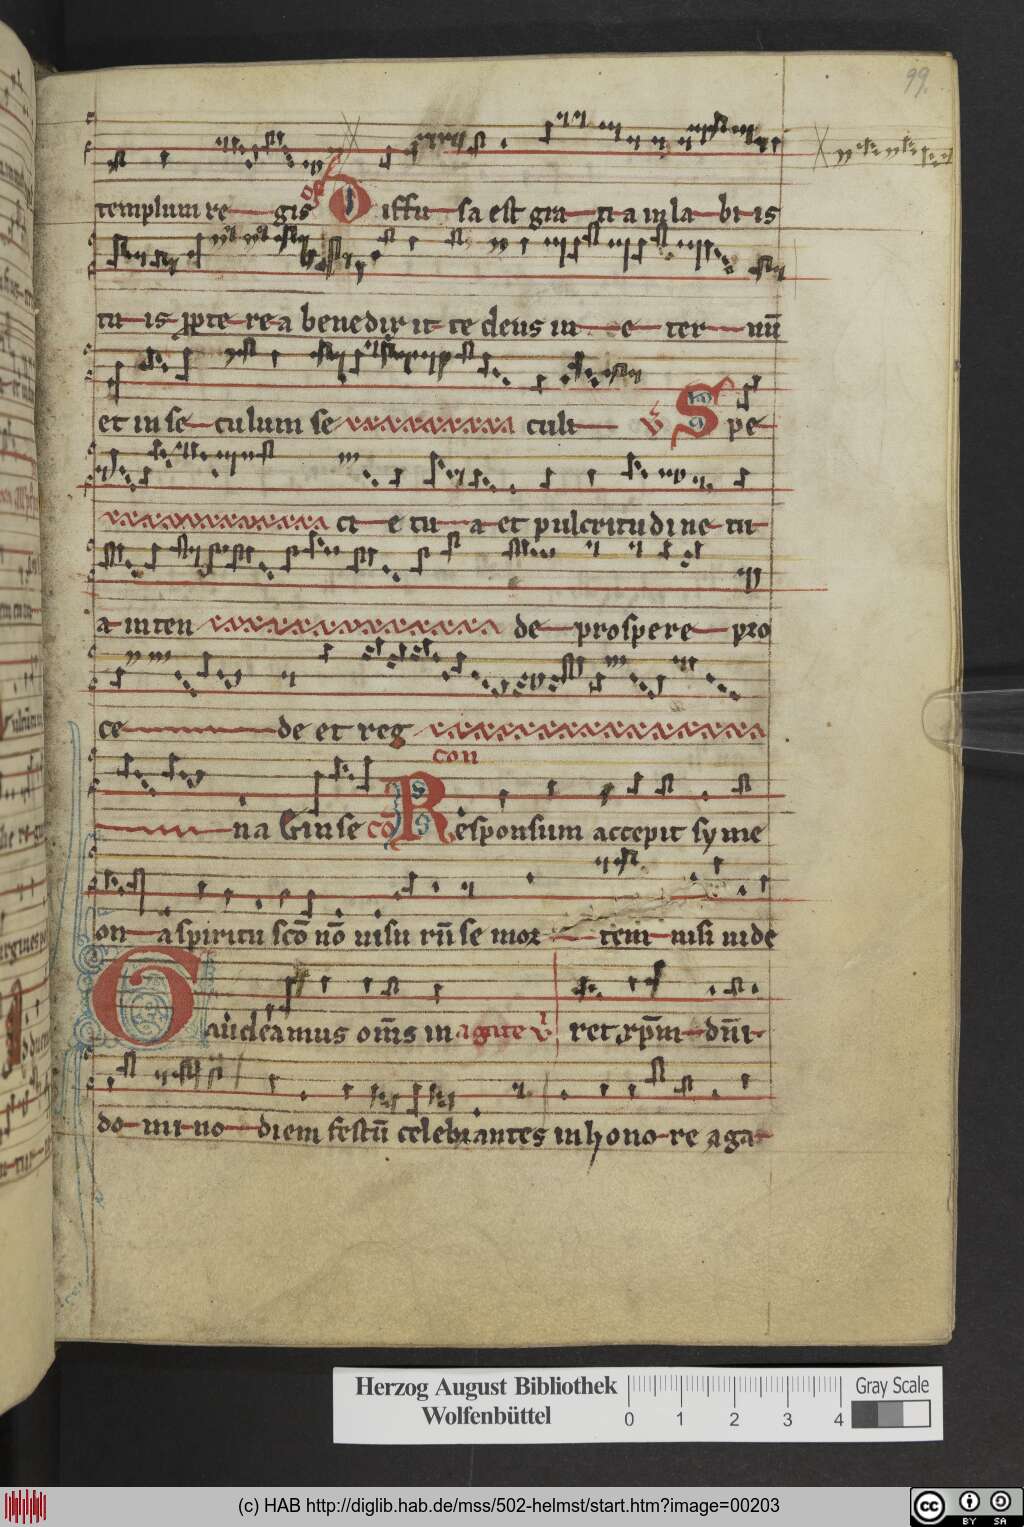 99.
templum re gis of Diffu sa est gra ti a in la bi is
tu is ppte re a benedix it te deus in e ter nū
et in se culum se culi v̄ Spe
ci e tu a et pulcritudi ne tu
a inten de prospere pro
ce de et reg
con
na Gius e cō Responsum accepit syme
on a spiritu scō nō visu rū se mor tem nisi vide
Gaudeamus om̄s in agnte v̄ ret xp̄m dn̄i
do mi no diem festū celebrantes in hono re aga
Herzog August Bibliothek
Wolfenbüttel
0 1 2 3 4
Gray Scale
(c) HAB http://diglib.hab.de/mss/502-helmst/start.htm?image=00203
cc BY SA